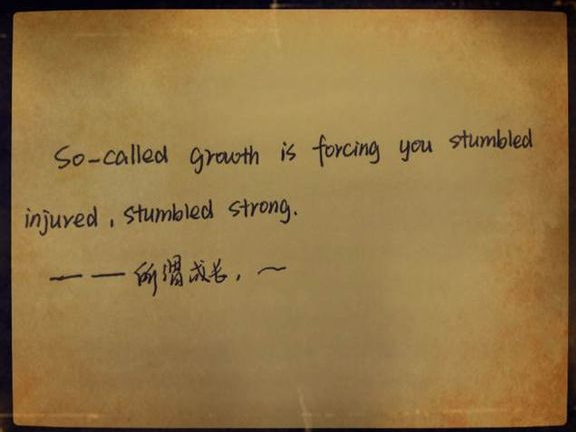 So-called growth is forcing you stumbled
injured, stumbled strong.
——所谓成长，~